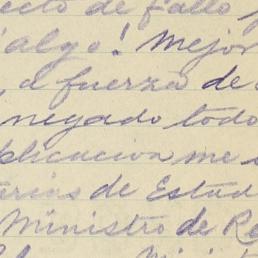 ecto de fallo
algo! Mejor
, a fuerza de
negado todo
plicacion me
tarias de Estad
Ministro de Re